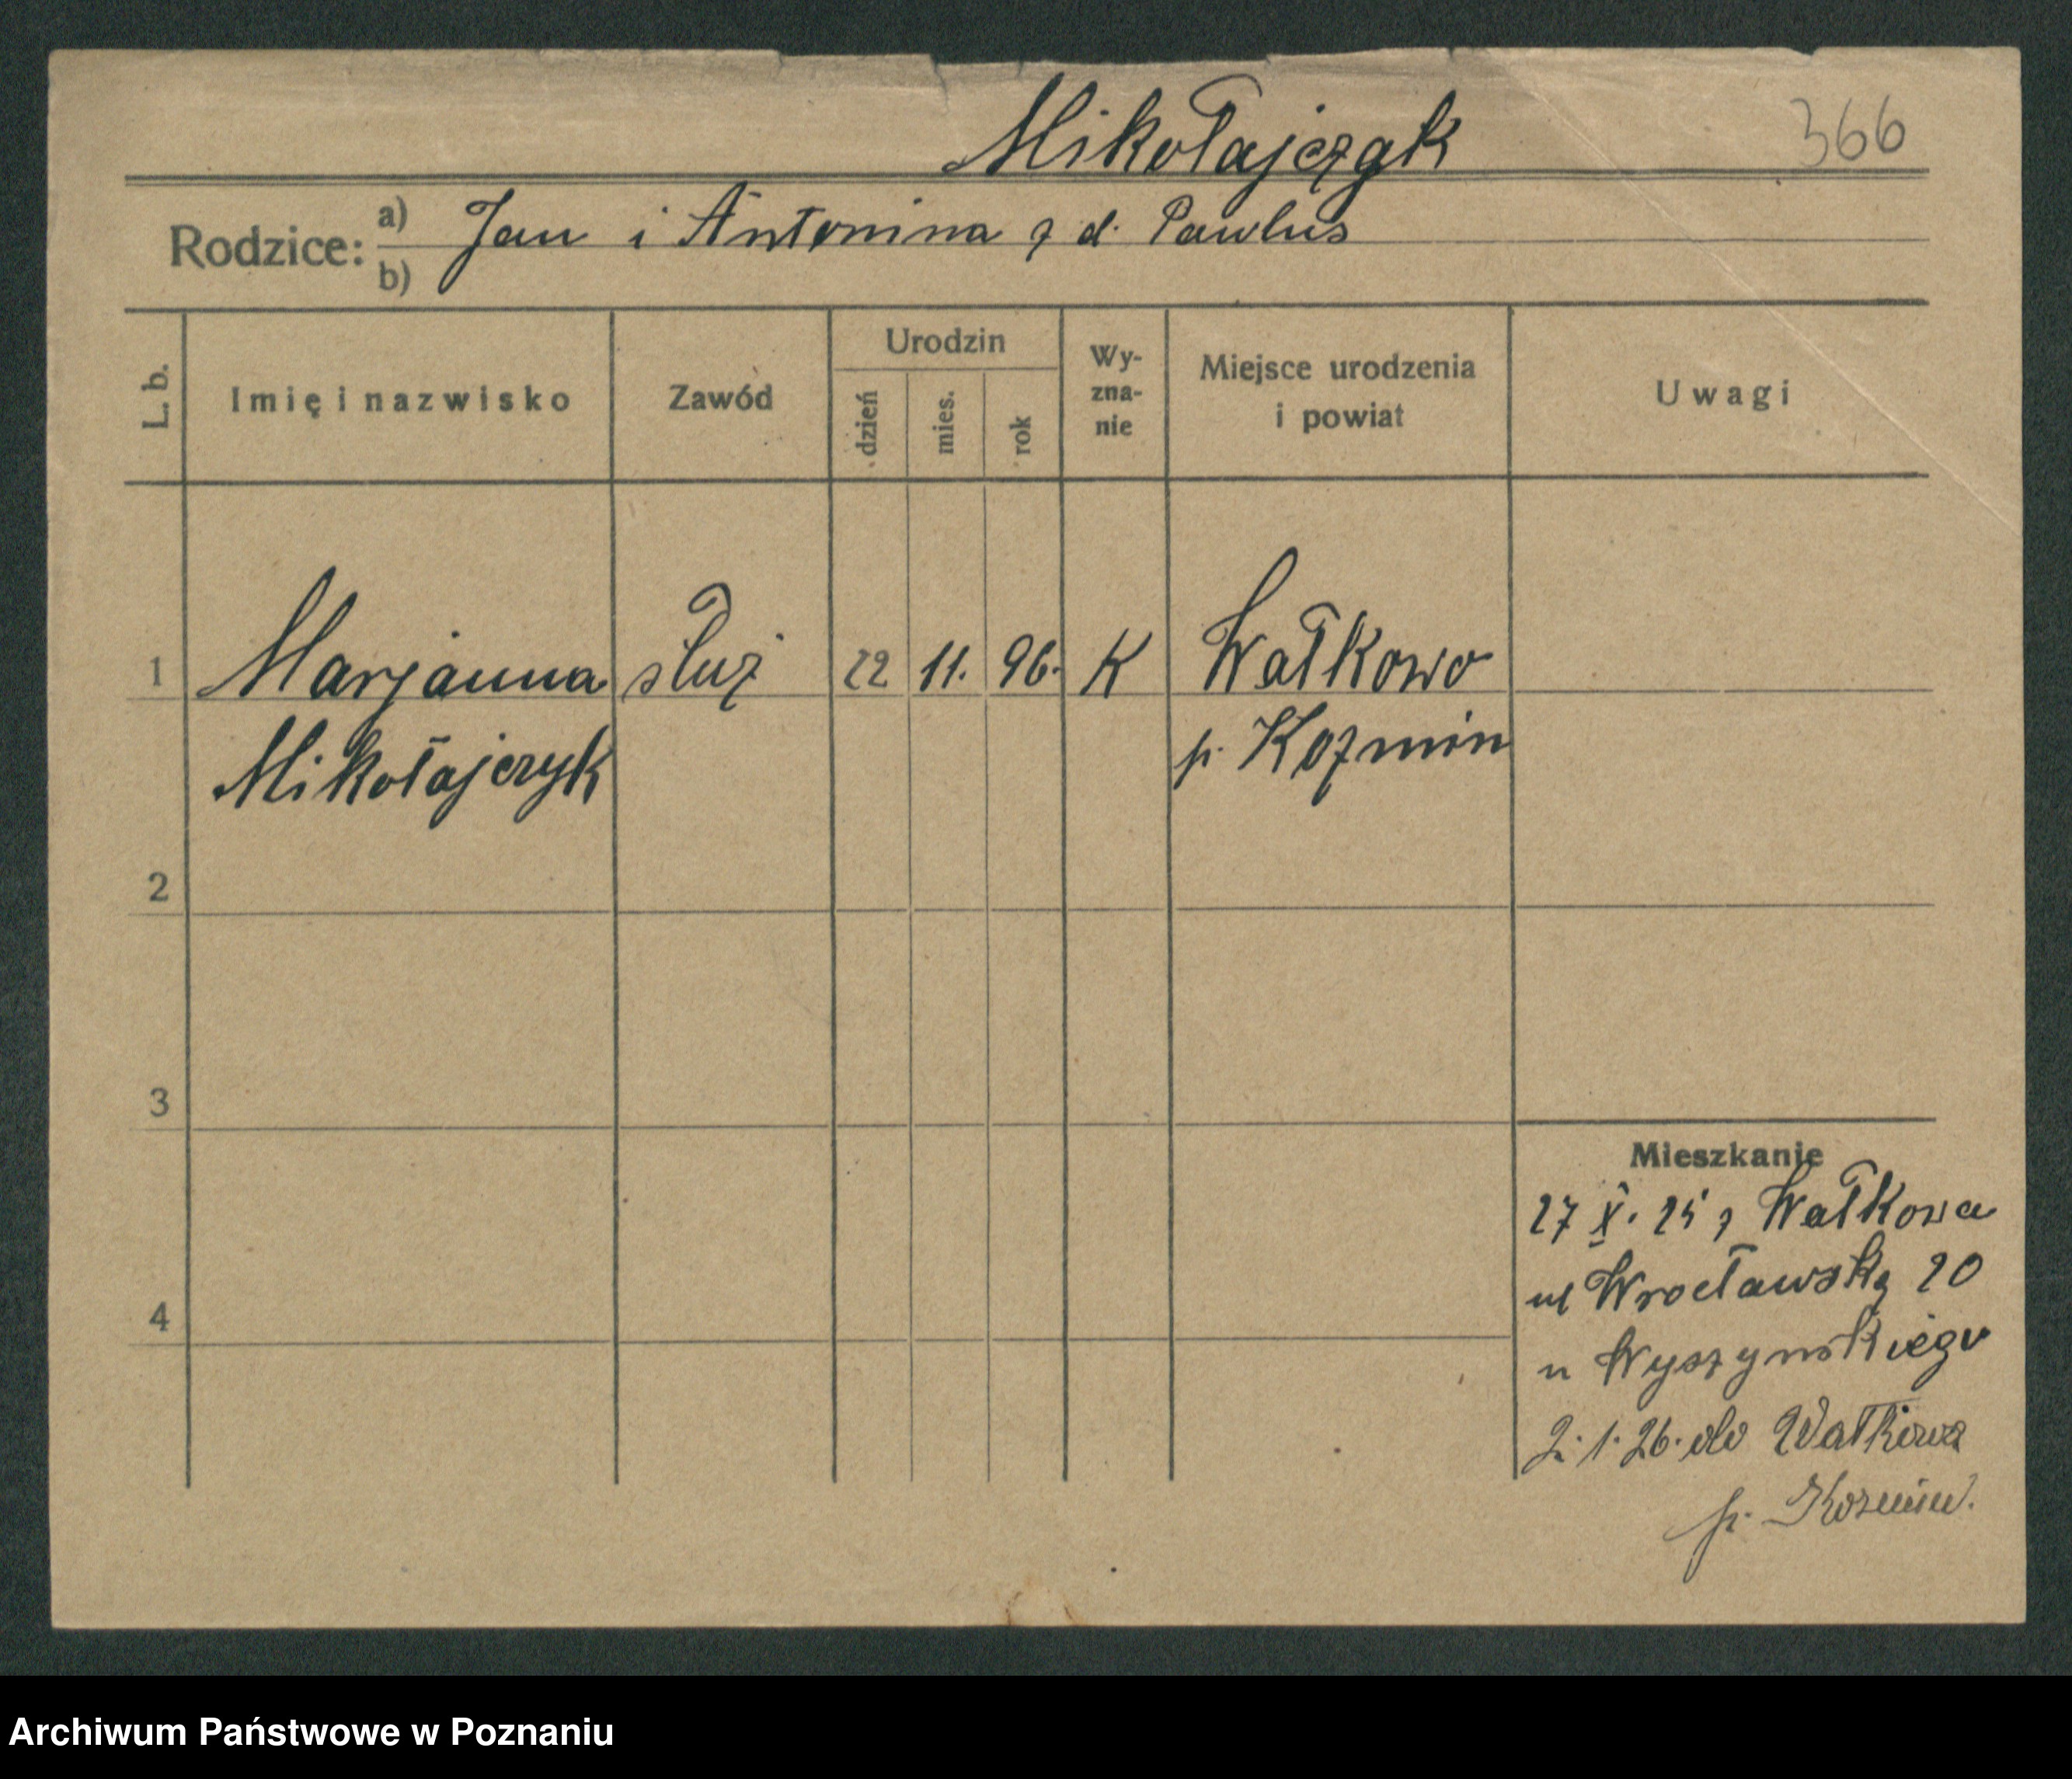 Mikołajczyk
366
Rodzice: a) Jan i Antonina z d. Pawlus
b)
L. b.
Imię i nazwisko
Zawód
Urodzin
dzień
mies.
rok
Wy-
zna-
nie
Miejsce urodzenia
i powiat
Uwagi
1 Marjanna służ 22 11. 96. K Wałkowo
Mikołajczyk p. Kozmin
2
3
4
Mieszkanie
27 X. 25 z Wałkowa
ul Wrocławska 20
u Wyszynskiego
2. 1. 26. do Wałkowa
p. Kozmin.
Archiwum Państwowe w Poznaniu